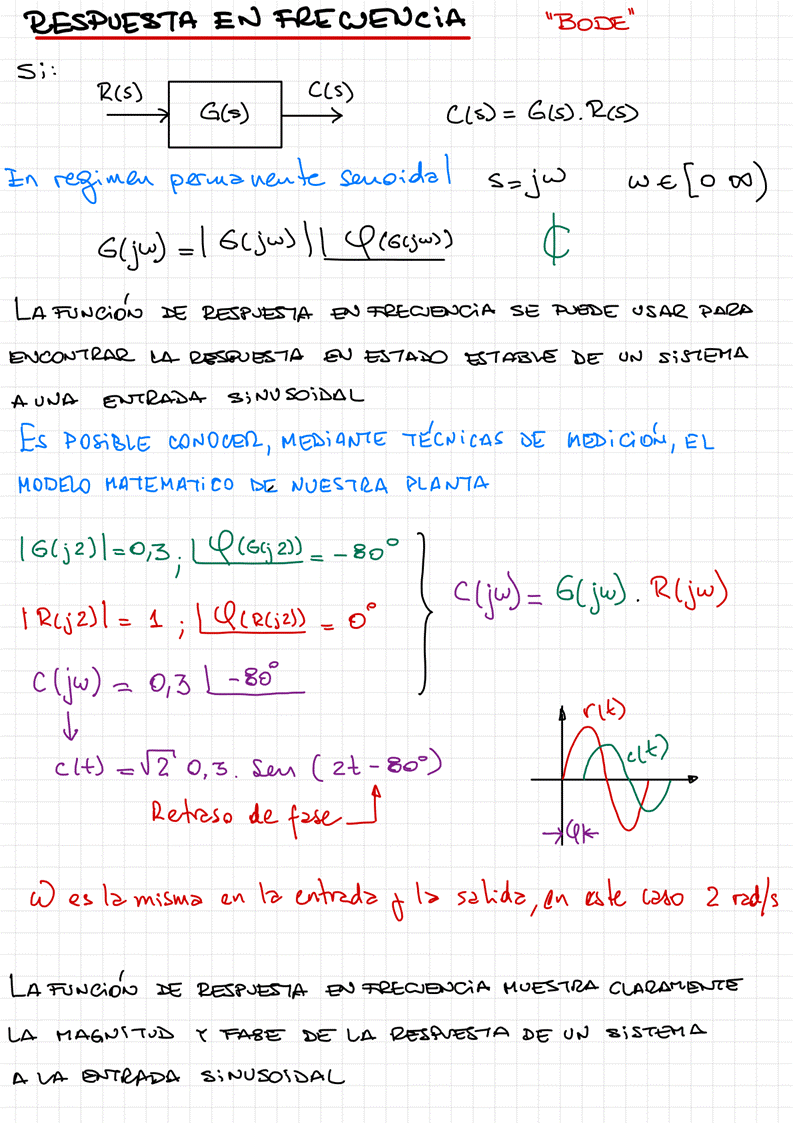 RESPUESTA EN FRECUENCIA "BODE"
Si:
R(s) G(s) C(s) C(s) = G(s). R(s)
En regimen permanente senoidal s=jω ω ∈ [0 ∞)
G(jω) = |G(jω)| φ(G(jω)) ₵
LA FUNCIÓN DE RESPUESTA EN FRECUENCIA SE PUEDE USAR PARA
ENCONTRAR LA RESPUESTA EN ESTADO ESTABLE DE UN SISTEMA
A UNA ENTRADA SINUSOIDAL
ES POSIBLE CONOCER, MEDIANTE TÉCNICAS DE MEDICIÓN, EL
MODELO MATEMATICO DE NUESTRA PLANTA
|G(j2)|=0,3 ; φ(G(j2)) = -80°
C(jω) = G(jω) . R(jω)
|R(j2)| = 1 ; φ(R(j2)) = 0°
C(jω) = 0,3 -80°
r(t)
c(t)
c(t) = √2 0,3. Sen ( 2t - 80°)
Retraso de fase
φ
ω es la misma en la entrada y la salida, en este caso 2 rad/s
LA FUNCIÓN DE RESPUESTA EN FRECUENCIA MUESTRA CLARAMENTE
LA MAGNITUD Y FASE DE LA RESPUESTA DE UN SISTEMA
A LA ENTRADA SINUSOIDAL